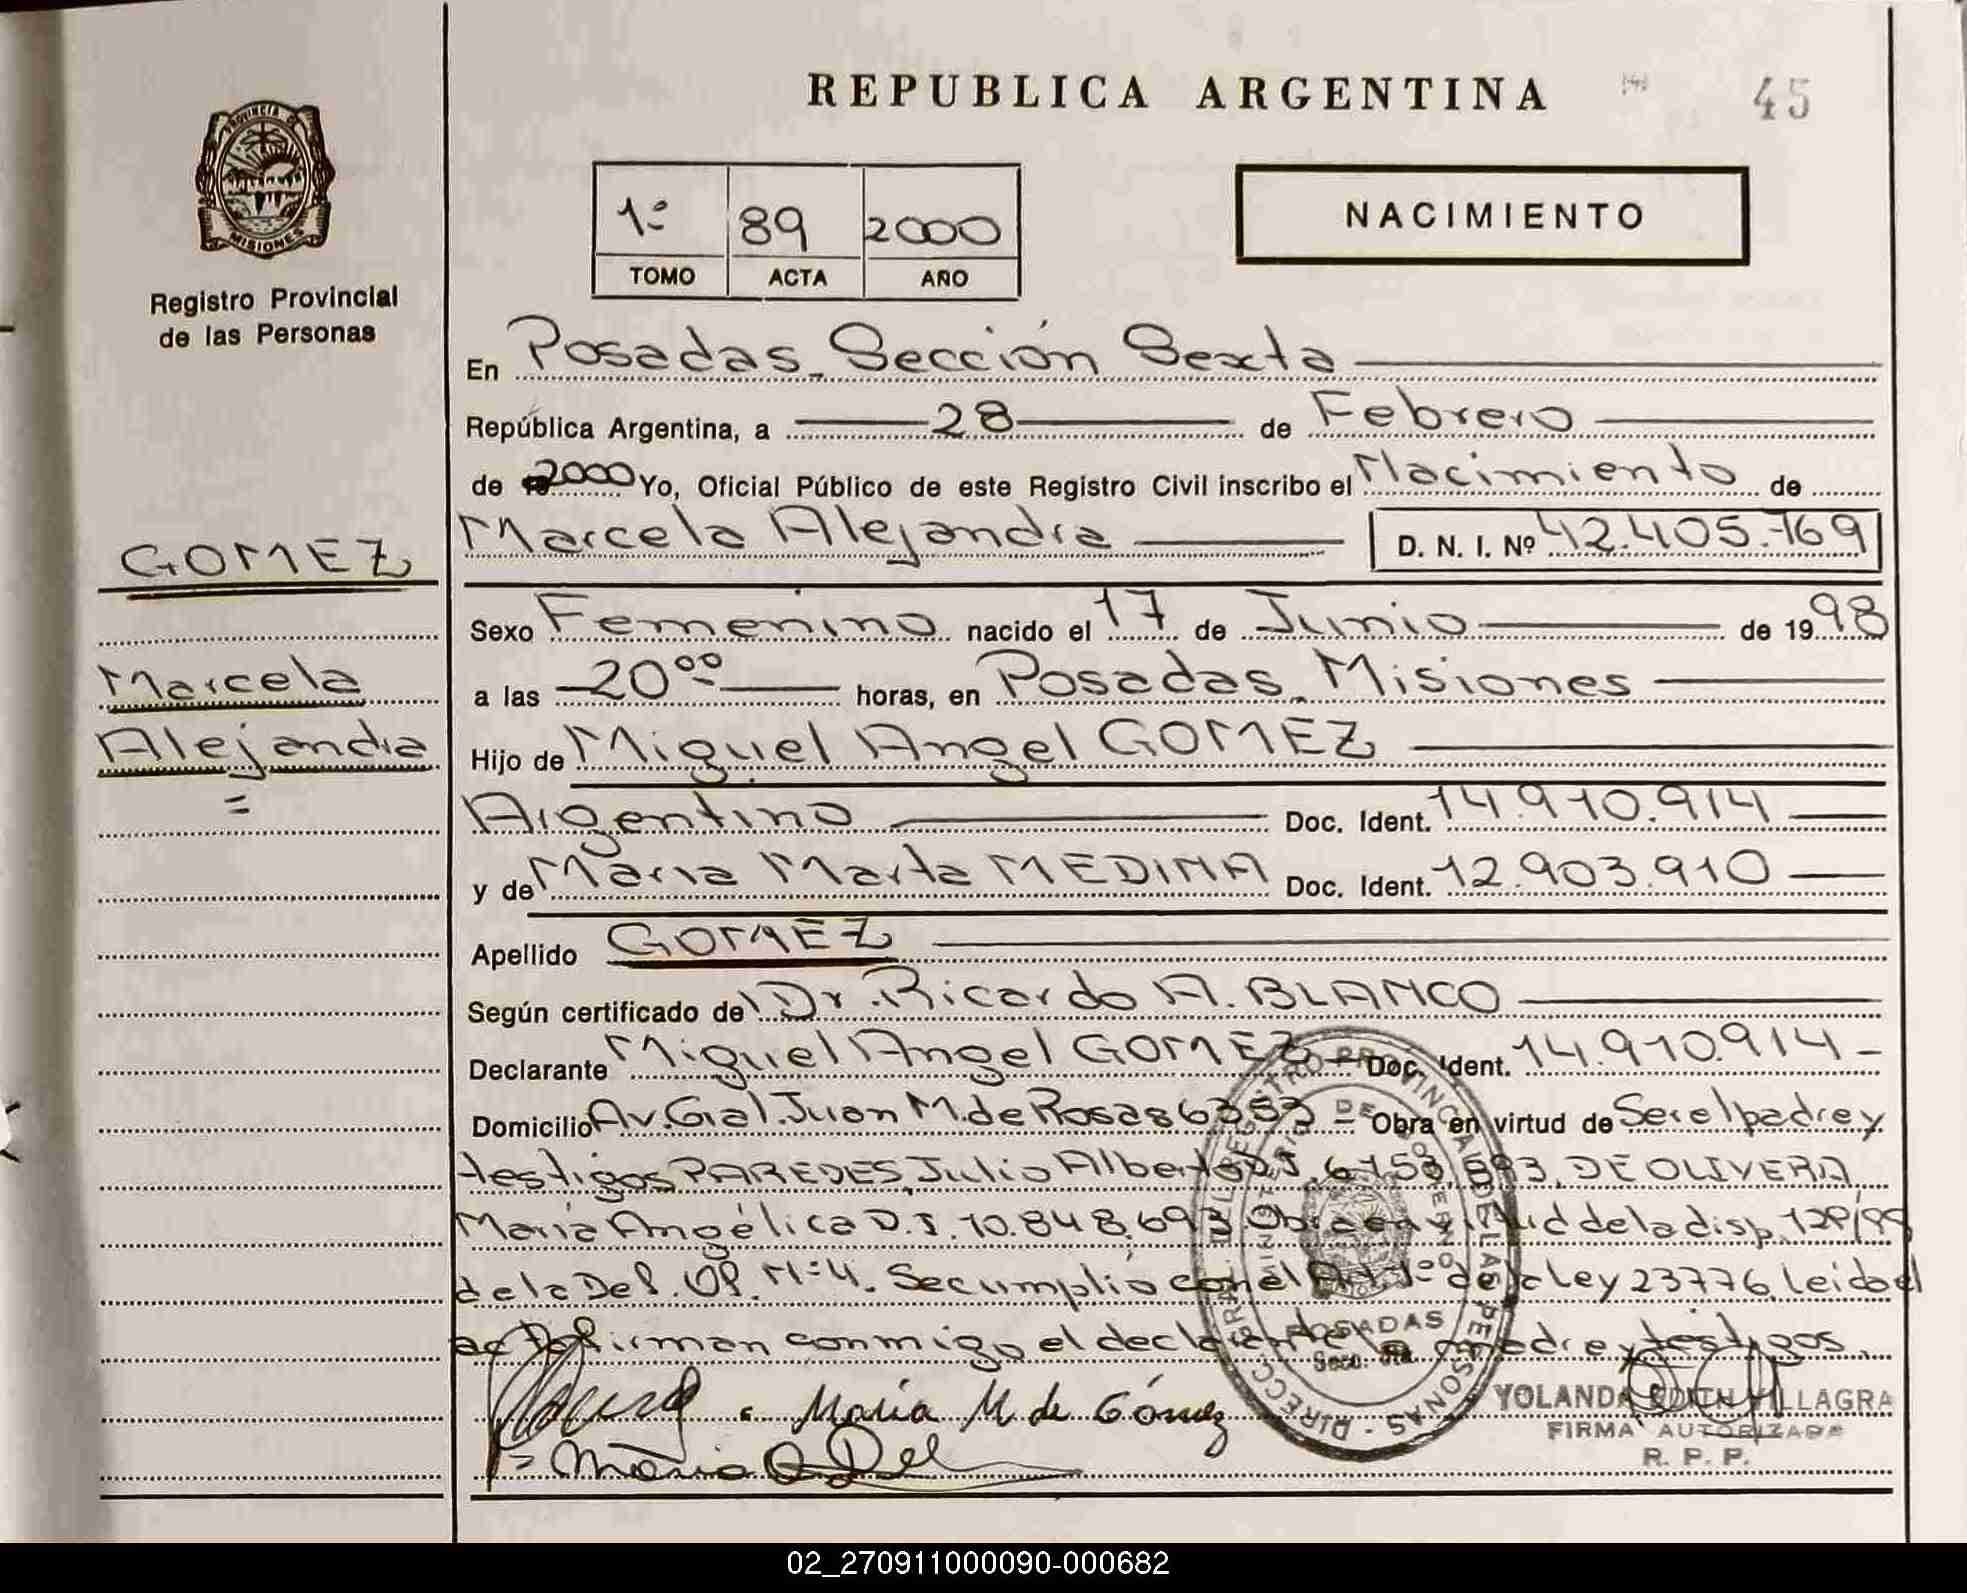 REPUBLICA ARGENTINA
45
PROVINCIA DE
MISIONES
Registro Provincial
de las Personas
1º 89 2000
TOMO ACTA AÑO
NACIMIENTO
En Posadas. Sección Sexta
República Argentina, a 28 de Febrero
de 2000 Yo, Oficial Público de este Registro Civil inscribo el Nacimiento de
Marcela Alejandra D. N. I. Nº 42.405.769
GOMEZ
Marcela
Alejandra
=
Sexo Femenino nacido el 17 de Junio de 1998
a las 20ºº horas, en Posadas. Misiones
Hijo de Miguel Angel GOMEZ
Argentino Doc. Ident. 14.910.914
y de María Marta MEDINA Doc. Ident. 12.903.910
Apellido GOMEZ
Según certificado de Dr. Ricardo A. BLANCO
Declarante Miguel Angel GOMEZ Doc. Ident. 14.910.914
Domicilio Av. Gral. Juan M. de Rosas 6353 Obra en virtud de Ser el padre y
testigos PAREDES, Julio Alberto D.I. DE OLIVERA
María Angélica D.I. 10.848.693. Obra en virtud de la disp.
de la Del. Of. Nº 4. Se cumplió con el Art. 1º de la Ley 23776. Leido el
acta firman conmigo el declarante la madre y testigos.
DIRECC. GRAL. DEL REGISTRO PROVINCIAL DE LAS PERSONAS
MINISTERIO DE GOBIERNO
POSADAS
Secc. 6ta.
María M. de Gómez
YOLANDA EDITH VILLAGRA
FIRMA AUTORIZADA
R. P. P.
02_270911000090-000682